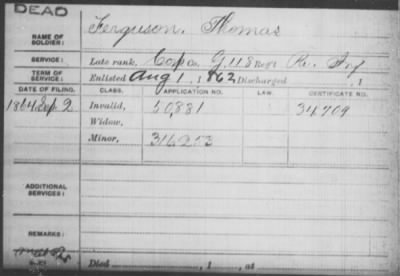 DEAD
NAME OF SOLDIER: Ferguson, Thomas
SERVICE: Late rank, Co. G, 118 Reg't Inf
TERM OF SERVICE: Enlisted Aug 1, 1862 Discharged , 1
DATE OF FILING. CLASS. APPLICATION NO. LAW. CERTIFICATE NO.
1864 Sep 2 Invalid, 50,881 34,709
Widow,
Minor, 316253
ADDITIONAL SERVICES:
REMARKS:
Died , 1 , at